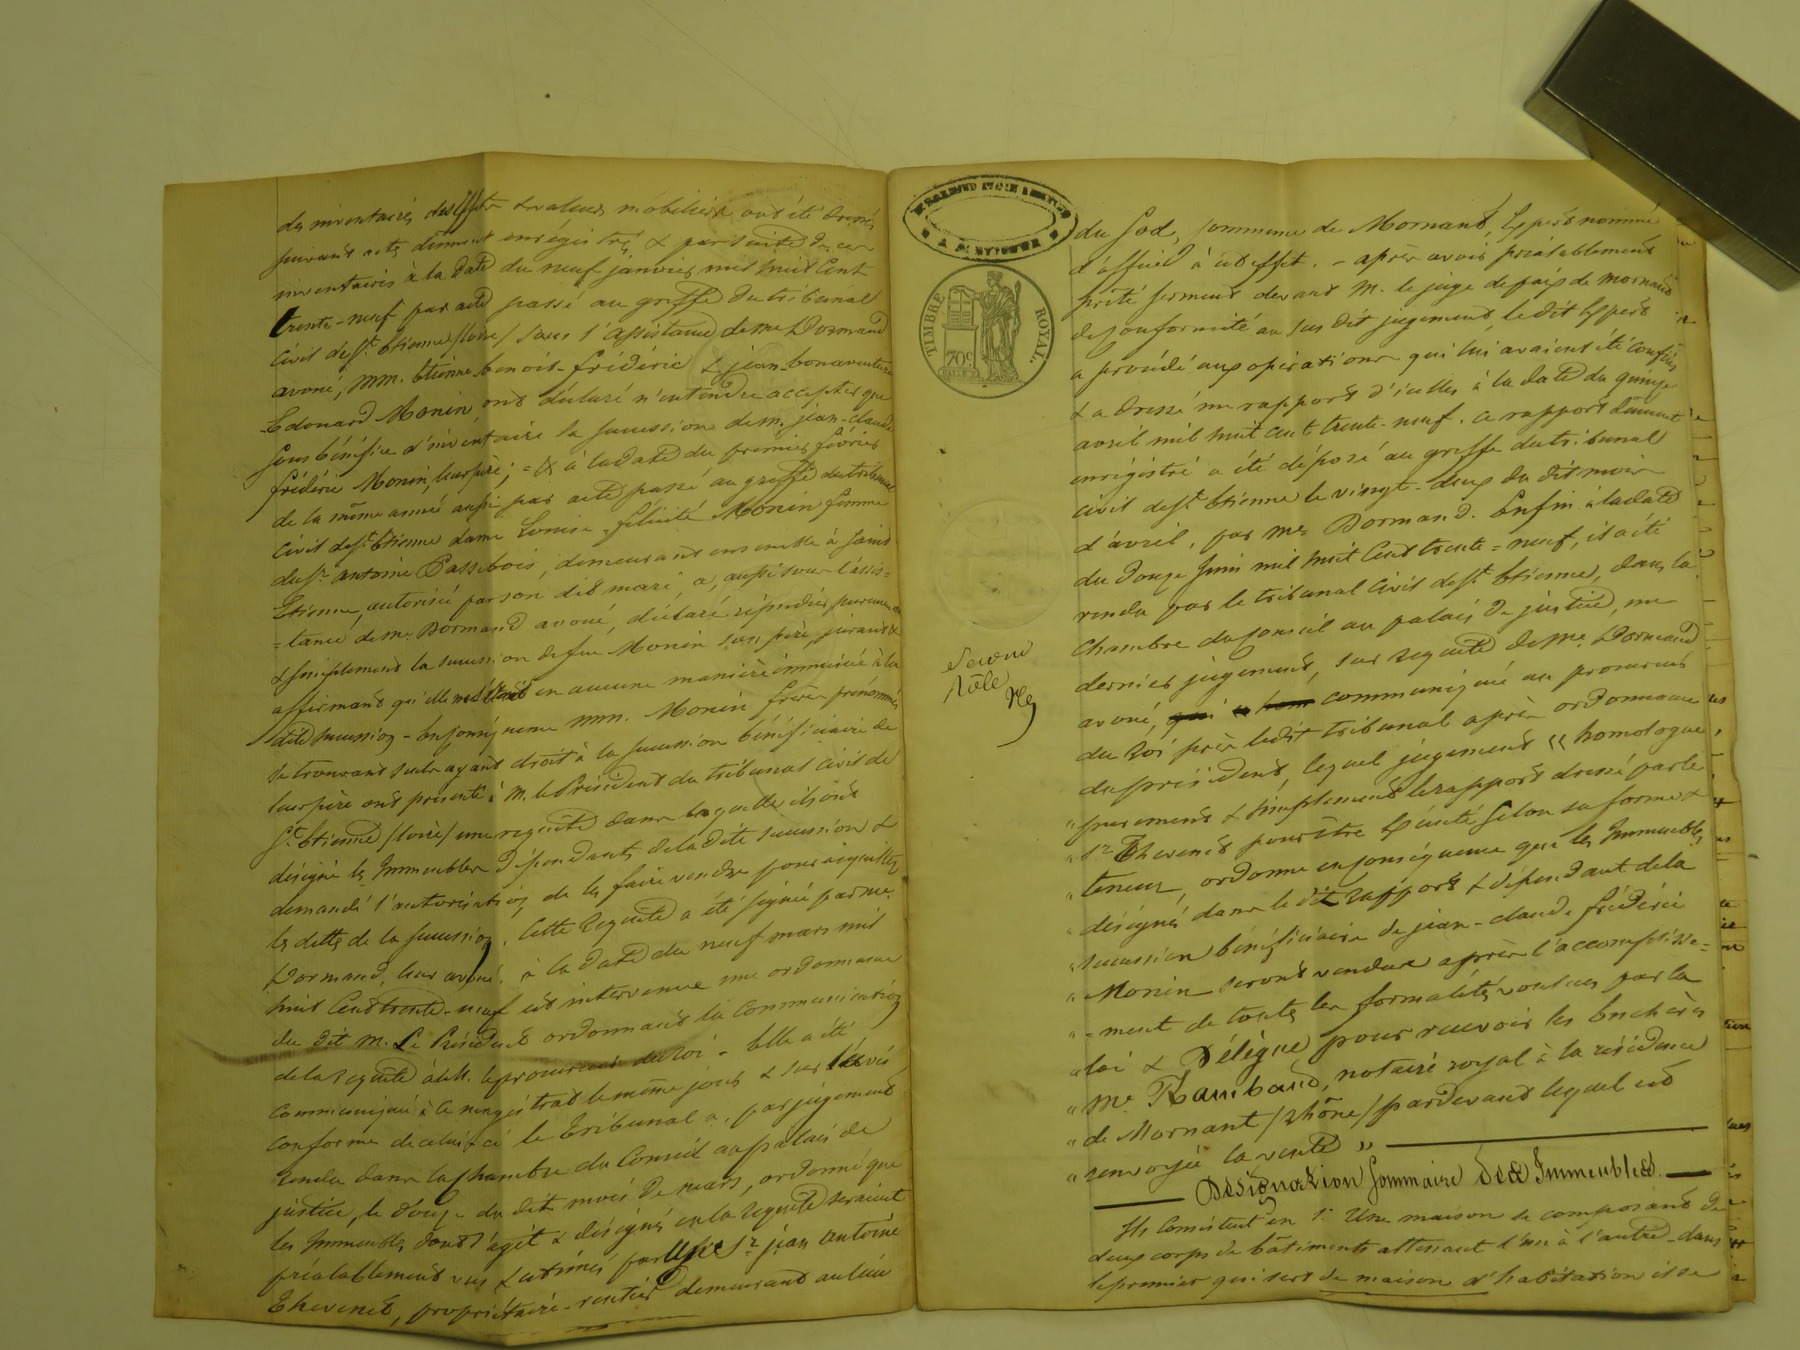 des inventaires des effets & valeurs mobiliers ont été dressés
suivant actes dûment enrégistrés, & par suite de ces
inventaires à la date du neuf janvier mil huit cent
trente-neuf par acte passé au greffe du tribunal
civil de St. Etienne /Loire/ sous l'assistance de me Dormand
avoué, mm. Etienne-benoit-frédéric & jean-bonaventure
Edouard Monin, ont déclaré n'entendre accepter que
sous bénéfice d'inventaire la succession de m. jean-claude
frédéric Monin, leur père; = & à la date du premier février
de la même année aussi par acte passé au greffe du tribunal
civil de St. Etienne dame Louise-félicité Monin femme
du Sr. antoine Passebois, demeurant ensemble à Saint
Etienne, autorisée par son dit mari, a, aussi sous l'assis=
=tance de me Dormand avoué, déclaré répudier purement
& simplement la succession de feu Monin son père, jurant &
affirmant qu'elle ne s'était en aucune manière immiscée à la
dite succession - En conséquence mm. Monin frères prénommés
se trouvant seuls ayant droit à la succession bénéficiaire de
leur père ont présenté à M. le Président du tribunal civil de
St. Etienne /Loire/ une requête dans laquelle ils ont
désigné les Immeubles dépendants de la dite succession &
demandé l'autorisation de les faire vendre pour acquitter
les dettes de la succession. Cette requête a été signée par me.
Dormand, leur avoué. à la date du neuf mars mil
huit cent trente-neuf est intervenue une ordonnance
du dit M. Le Président ordonnant la communication
de la requête à M. le procureur du roi - Elle a été
communiquée à ce magistrat le même jour & sur l'avis
conforme de celui-ci le tribunal a, par jugement
rendu dans la chambre du Conseil au palais de
justice, le douze du dit mois de mars, ordonné que
les Immeubles dont s'agit & désignés en la requête seraient
préalablement vus & estimés par le Sr. jean antoine
Thevenet, propriétaire-rentier demeurant au lieu
TIMBRE ROYAL.
70c
Second
Rôle
du God, commune de Mornant, Expert nommé
d'office à cet effet. - après avoir préalablement
prêté serment devant M. le juge de paix de mornant
de conformité au sus dit jugement, le dit Expert
a procédé aux opérations qui lui avaient été confiées
& a dressé un rapport d'icelles à la date du quinze
avril mil huit cent trente-neuf. ce rapport dûment
enrégistré a été déposé au greffe du tribunal
civil de St. Etienne le vingt-deux du dit mois
d'avril, par me Dormand. Enfin à la date
du douze Juin mil huit cent trente=neuf, il a été
rendu par le tribunal civil de St. Etienne, dans la
chambre du conseil au palais de justice, un
dernier jugement, sur requête de Me. Dormand
avoué, communiqué au procureur
du roi près ledit tribunal après ordonnance
du président, lequel jugement « homologue
" purement & simplement le rapport dressé par le
" Sr. Thevenet pour être exécuté selon sa forme &
" teneur, ordonne en conséquence que les Immeubles
" désignés dans le dit rapport & dépendant de la
" succession bénéficiaire de jean-claude frédéric
" Monin seront vendus après l'accomplisse=
" =ment de toutes les formalités voulues par la
" loi & Délègue pour recevoir les enchères
" me. Rambaud, notaire royal à la résidence
" de Mornant /Rhône/ pardevant lequel est
" renvoyée la vente »
Désignation Sommaire des Immeubles.
Ils consistent en 1°. Une maison se composant de
deux corps de bâtiments attenant l'un à l'autre - dans
le premier qui sert de maison d'habitation il se